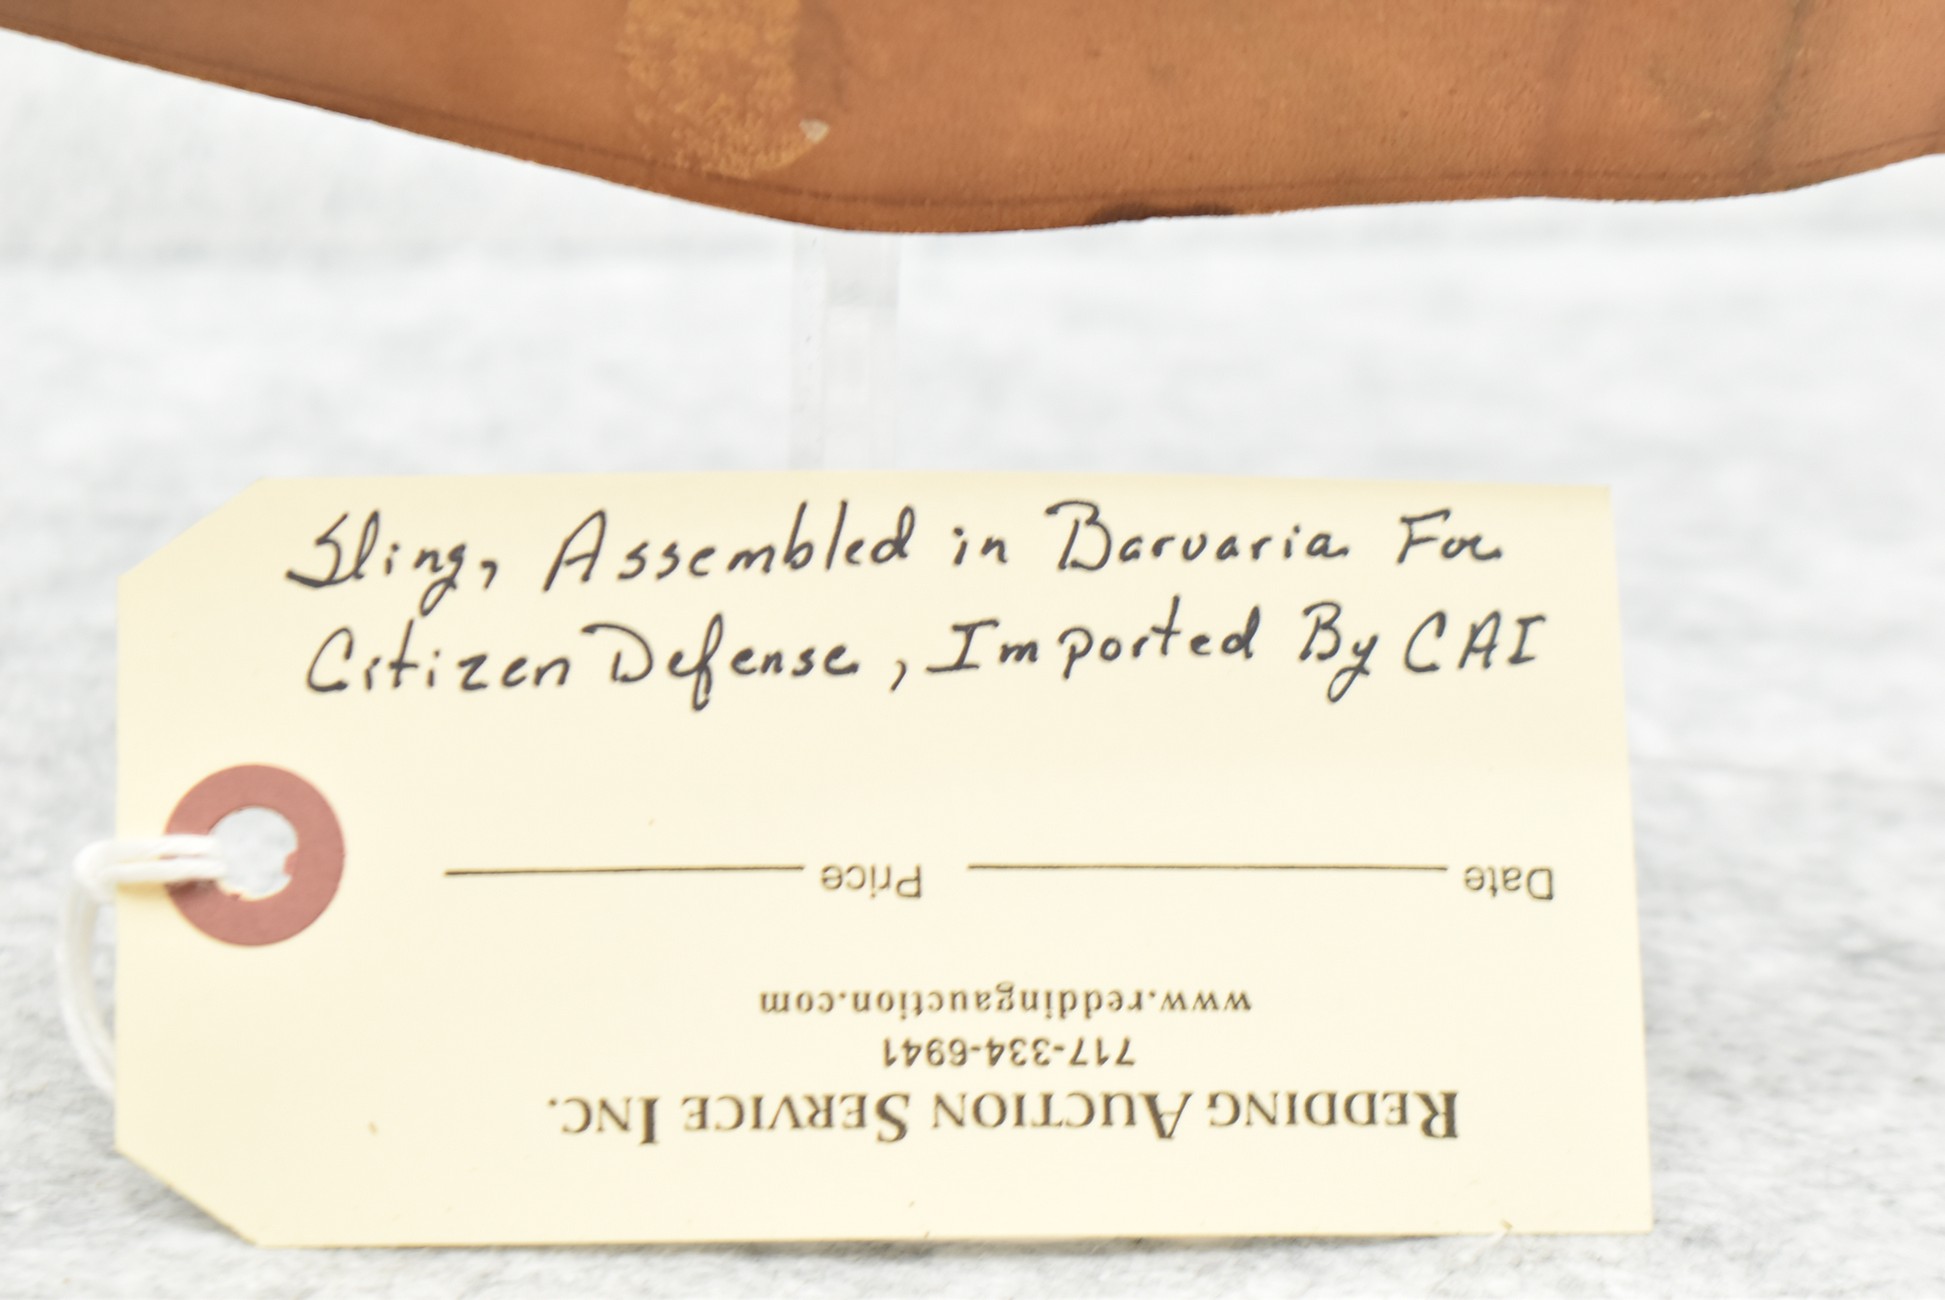 Sling, Assembled in Barvaria For
Citizen Defense, Imported By CAI
Date Price
www.reddingauction.com
717-334-6941
REDDING AUCTION SERVICE INC.